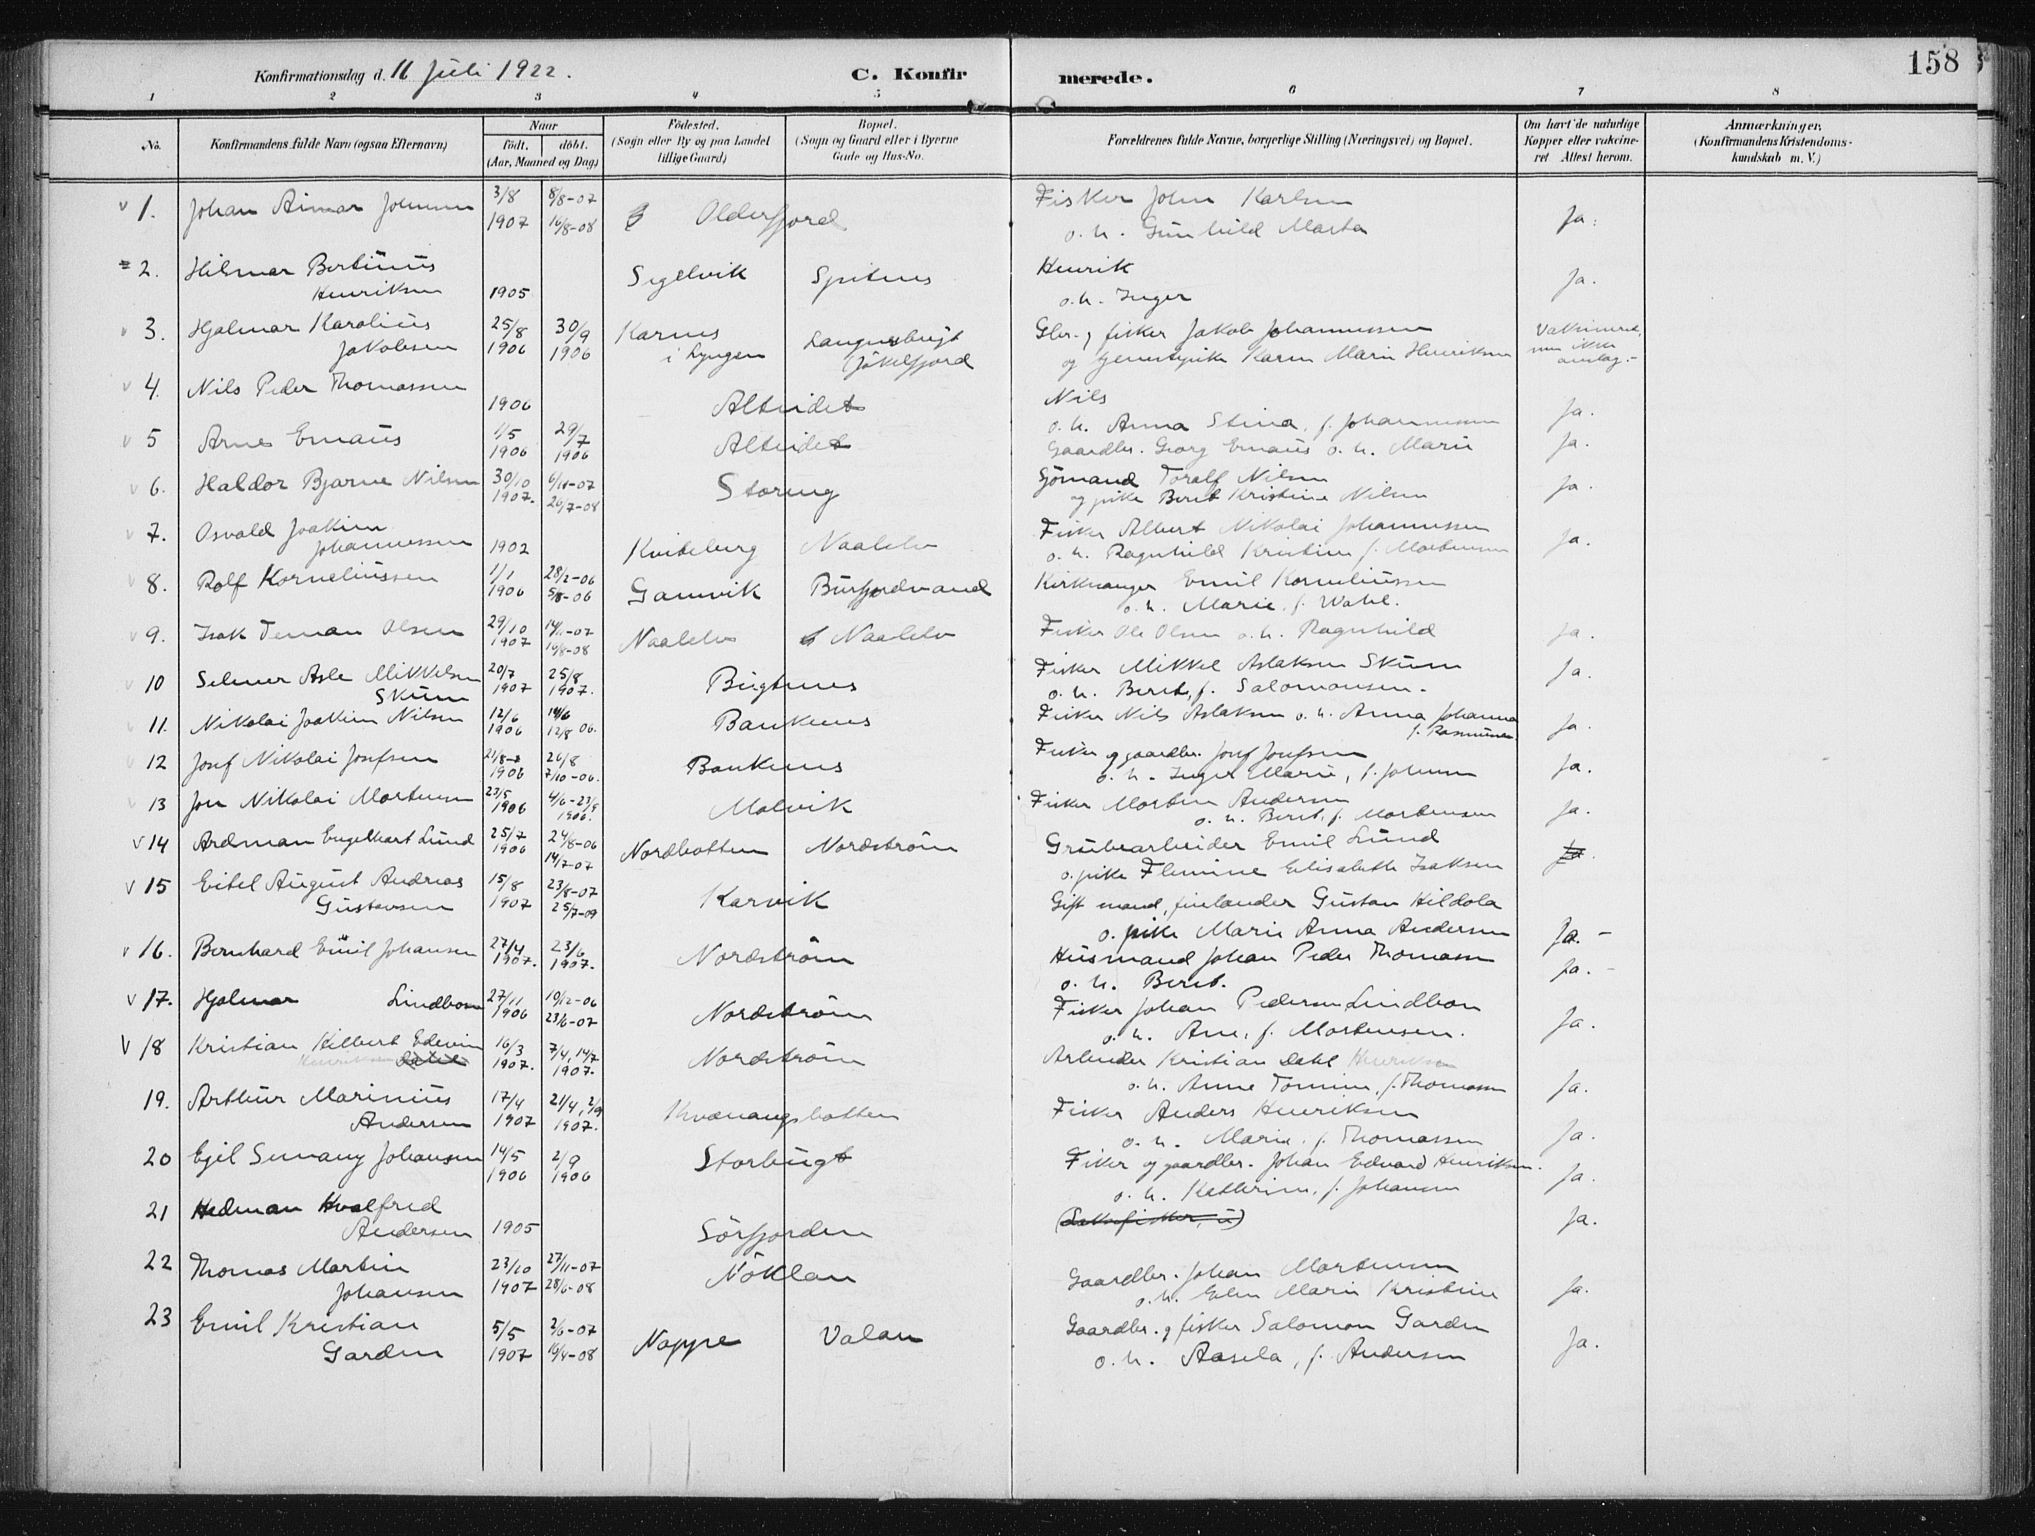 158
Konfirmationsdag d. 11 Juli 1922. C. Konfirmerede.
1 2 3 4 5 6 7 8
No. Konfirmandens fulde Navn (ogsaa Efternavn) Naar født. døbt. (Aar, Maaned og Dag) Fødested. (Sogn eller By og paa Landet tillige Gaard) Bopæl. (Sogn og Gaard eller i Byerne Gade og Hus-No. Forældrenes fulde Navne, borgerlige Stilling (Næringsvei) og Bopæl. Om havt de naturlige Kopper eller vakcineret Attest herom. Anmærkninger. (Konfirmandens Kristendomskundskab m. V.)
1. Johan Aimar Johnsen 3/8 1907 8/8-07 16/8-08 Olderfjord Fisker John Karlsen
o. h. Gunhild Marta Ja.
2. Hilmar Bertinus
Henriksen 1905 Segelvik Spitnes Henrik
o. h. Inger Ja.
3. Hjalmar Karolius
Jakobsen 25/8 1906 30/9 1906 Karnes i Lyngen Langnesbugt Jökelfjord Gbr. og fisker Jakob Johannessen
og tjenestepike Karen Marie Henriksen Vaksineret, men ikke anslag.-
4. Nils Peder Thomassen 1906 Alteidet Nils
o. h. Anna Stina, f. Johannessen Ja.
5 Arne Emaus 1/5 1906 29/7 1906 Alteidet Gaardbr. Georg Emaus o. h. Marie Ja.
6. Haldor Bjarne Nilsen 30/10 1907. 6/11-07 26/7-08 Storeng Sjömand Toralf Nilsen
og pike Berit Kristine Nilsen Ja.
7. Osvald Joakim
Johannessen 1902 Kviteberg Naalelv Fisker Albert Nikolai Johannessen
o. h. Ragnhild Kristine f. Mortensen Ja.
8. Rolf Korneliussen 1/1 1906 28/2-06 5/8-06 Gamvik Burfjordvand Kirkesanger Emil Korneliussen
o. h. Marie, f. Wahl.
9. Isak Teman Olsen 29/10 1907 14/11-07 19/8-08 Naalelv Naalelv Fisker Ole Olsen o. h. Ragnhild Ja.
10 Selmer Asle Mikkelsen
Skum 20/7 1907 25/8 1907. Bugtnes Fisker Mikkel Aslaksen Skum
o. h. Berit, f. Salomonsen. Ja.
11. Nikolai Joakim Nilsen 12/6 1906 14/6 12/8 06. Bankenes Fisker Nils Aslaksen o. h. Anna Johanna
f. Rasmussen Ja.
12 Josef Nikolai Josefsen 21/8 1906 26/8 7/10-06. Bankenes Fisker og gaardbr. Josef Josefsen
o. h. Inger Marie, f. Johnsen Ja.
13 Jon Nikolai Mortensen 23/5 1906 4/6-23/9 1906. Malvik Fisker Morten Andersen
o. h. Berit, f. Mortensen Ja.
14 Ardman Engelhart Lund 25/7 1906 24/8-06 14/7-07 Nordbotten Nordström Grubearbeider Emil Lund
o. pike Flemine Elisabeth Isaksen Ja.
15 Eitel August Andreas
Gustavsen 15/8 1907 23/8-07 25/7-09 Karvik Gift mand, finlænder Gustav Hildola
o. pike Marie Anna Andersen Ja. -
16. Bernhard Emil Johansen 27/4 1907. 23/6 1907. Nordström Husmand Johan Peder Thomassen
o. h. Berit. Ja. -
17. Hjalmar Lindbom 27/11 1906 19/12-06 23/6-07 Nordström Fisker Johan Pedersen Lindbom
o. h. Ane, f. Mortensen. Ja.
18 Kristian Hilbert Edevin
Henriksen Dahl 16/3 1907. 7/4, 14/7 1907. Nordström Arbeider Kristian Dahl Henriksen
o. h. Anne Tomine, f. Thomassen Ja.
19. Arthur Marinius
Andersen 17/4 1907 21/4, 2/9 1907. Kvænangsbotten Fisker Anders Henriksen
o. h. Marie, f. Thomassen Ja.
20 Egil Semany Johansen 14/5 1906 2/9 1906 Storbugt Fisker og gaardbr. Johan Edvard Henriksen.
o. h. Kathrine, f. Johansen Ja.
21 Hedman Hvalfred
Andersen 1905 Sörfjorden Ja.
22 Thomas Martin
Johansen 23/10 1907 27/11-07 28/6-08 Nöklan Gaardbr. Johan Mortensen
o. h. Elen Marie Kristine Ja.
23 Emil Kristian
Garden 5/5 1907 2/6-07 19/4-08 Noppe Valan Gaardbr. og fisker Salomon Garden
o. h. Aasela, f. Andersen Ja.